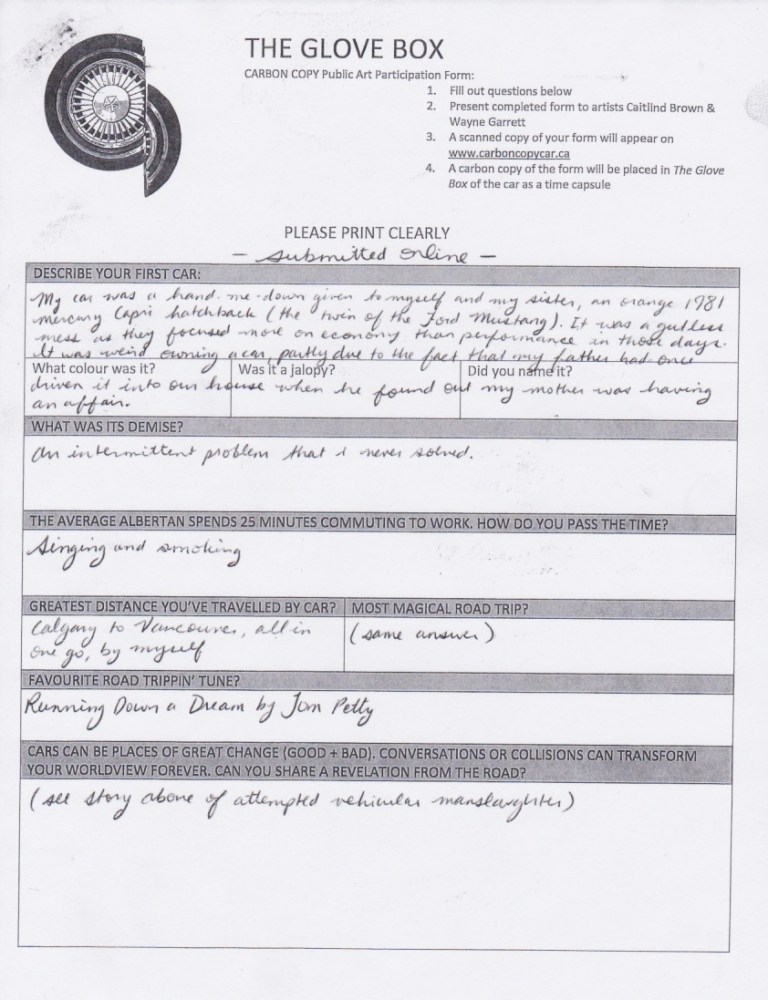 THE GLOVE BOX
CARBON COPY Public Art Participation Form:
1. Fill out questions below
2. Present completed form to artists Caitlind Brown &
Wayne Garrett
3. A scanned copy of your form will appear on
www.carboncopycar.ca
4. A carbon copy of the form will be placed in The Glove
Box of the car as a time capsule
PLEASE PRINT CLEARLY
- submitted online -
DESCRIBE YOUR FIRST CAR:
My car was a hand-me-down given to myself and my sister, an orange 1981
Mercury Capri hatchback (the twin of the Ford Mustang). It was a gutless
mess as they focused more on economy than performance in those days.
It was weird owning a car, partly due to the fact that my father had once
What colour was it? Was it a jalopy? Did you name it?
driven it into our house when he found out my mother was having
an affair.
WHAT WAS ITS DEMISE?
An intermittent problem that i never solved.
THE AVERAGE ALBERTAN SPENDS 25 MINUTES COMMUTING TO WORK. HOW DO YOU PASS THE TIME?
Singing and smoking
GREATEST DISTANCE YOU'VE TRAVELLED BY CAR? MOST MAGICAL ROAD TRIP?
Calgary to Vancouver, all in (same answer)
one go, by myself
FAVOURITE ROAD TRIPPIN' TUNE?
Running Down a Dream by Tom Petty
CARS CAN BE PLACES OF GREAT CHANGE (GOOD + BAD). CONVERSATIONS OR COLLISIONS CAN TRANSFORM
YOUR WORLDVIEW FOREVER. CAN YOU SHARE A REVELATION FROM THE ROAD?
(see story above of attempted vehicular manslaughter)